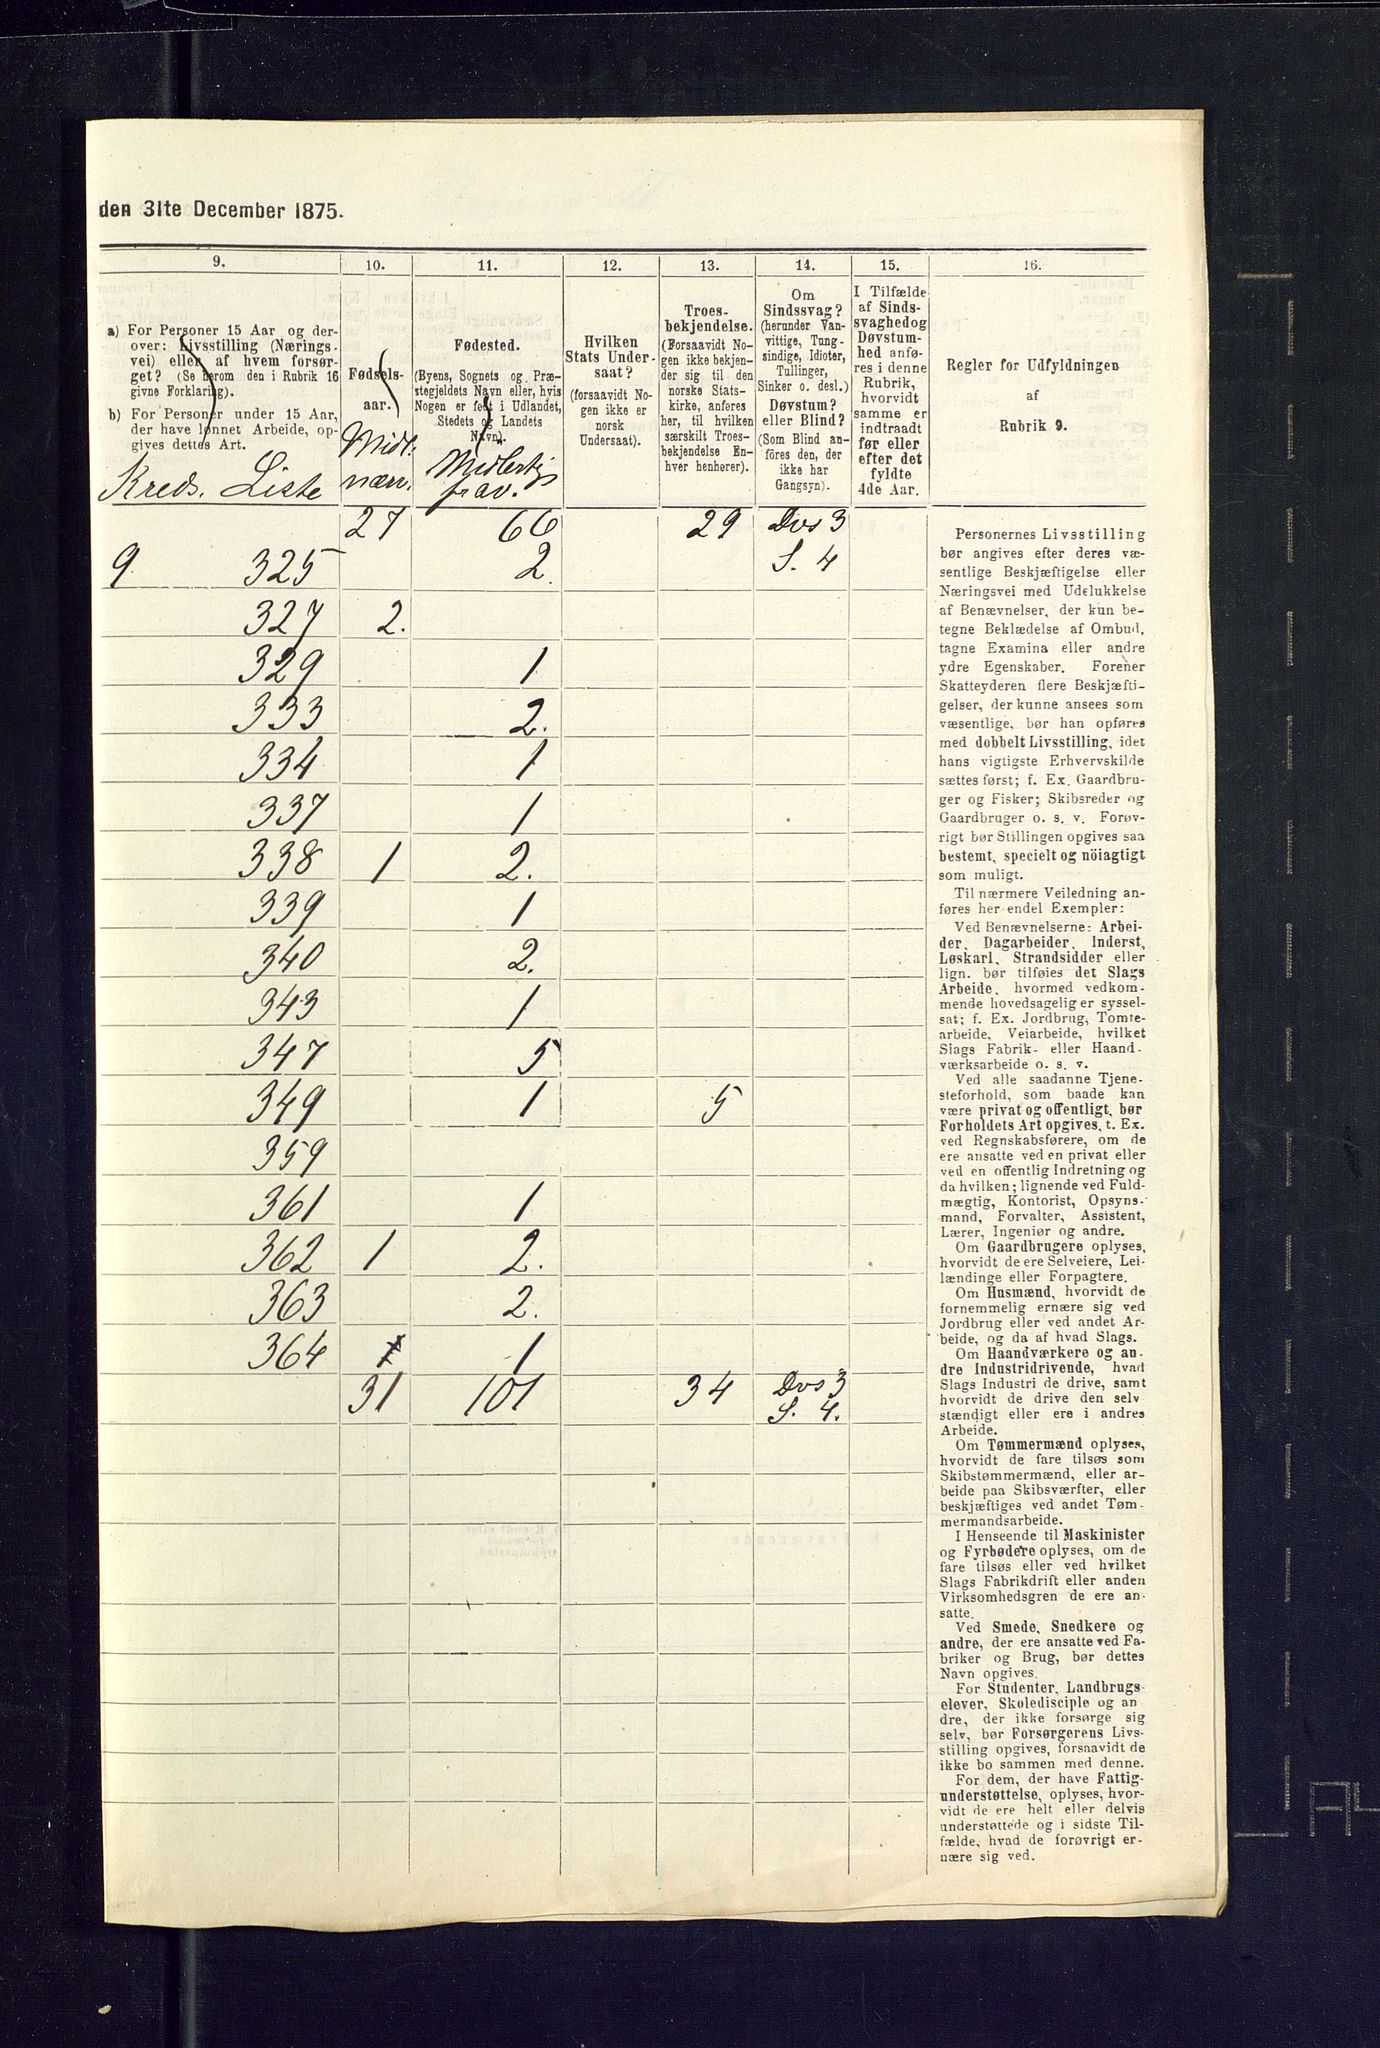 den 31te December 1875.
9. 10. 11. 12. 13. 14. 15. 16.
a) For Personer 15 Aar og der-
over: Livsstilling (Nærings-
vei) eller af hvem forsør-
get? (Se herom den i Rubrik 16
givne Forklaring).
b) For Personer under 15 Aar,
der have lønnet Arbeide, op-
gives dettes Art.
Kreds. Liste
Fødsels-
aar.
Midl.
nærv.
Fødested.
(Byens, Sognets og Præ-
stegjeldets Navn eller, hvis
Nogen er født i Udlandet,
Stedets og Landets
Navn).
Midlertig
frav.
Hvilken
Stats Under-
saat?
(forsaavidt No-
gen ikke er
norsk
Undersaat).
Troes-
bekjendelse.
(Forsaavidt No-
gen ikke bekjen-
der sig til den
norske Stats-
kirke, anføres
her, til hvilken
særskilt Troes-
bekjendelse En-
hver henhører).
Om
Sindssvag?
(herunder Van-
vittige, Tung-
sindige, Idioter,
Tullinger,
Sinker o. desl.)
Døvstum?
eller Blind?
(Som Blind an-
föres den, der
ikke har
Gangsyn).
I Tilfælde
af Sinds-
svaghed og
Døvstum-
hed anfø-
res i denne
Rubrik,
hvorvidt
samme er
indtraadt
før eller
efter det
fyldte
4de Aar.
Regler for Udfyldningen
af
Rubrik 9.
27 66 29 Dvs 3
9. 325 2. S. 4
327 2.
329 1
333 2.
334 1
337 1
338 1 2.
339 1
340 2.
343 1
347 5
349 1 5
359
361 1
362 1 2.
363 2.
364 1 1
31 101 34 Dvs 3
S. 4.
Personernes Livsstilling
bør angives efter deres væ-
sentlige Beskjæftigelse eller
Næringsvei med Udelukkelse
af Benævnelser, der kun be-
tegne Beklædelse af Ombud,
tagne Examina eller andre
ydre Egenskaber. Forener
Skatteyderen flere Beskjæfti-
gelser, der kunne ansees som
væsentlige, bør han opføres
med dobbelt Livsstilling, idet
hans vigtigste Erhvervskilde
sættes først; f. Ex. Gaardbru-
ger og Fisker; Skibsreder og
Gaardbruger o. s. v. Forøv-
rigt bør Stillingen opgives saa
bestemt, specielt og nöiagtigt
som muligt.
Til nærmere Veiledning an-
føres her endel Exempler:
Ved Benævnelserne: Arbei-
der, Dagarbeider, Inderst,
Løskarl, Strandsidder eller
lign. bør tilføies det Slags
Arbeide, hvormed vedkom-
mende hovedsagelig er syssel-
sat; f. Ex. Jordbrug, Tomte-
arbeide, Veiarbeide, hvilket
Slags Fabrik- eller Haand-
værksarbeide o. s. v.
Ved alle saadanne Tjene-
steforhold, som baade kan
være privat og offentligt, bør
Forholdets Art opgives, t. Ex.
ved Regnskabsførere, om de
ere ansatte ved en privat eller
ved en offentlig Indretning og
da hvilken; lignende ved Fuld-
mægtig, Kontorist, Opsyns-
mand, Forvalter, Assistent,
Lærer, Ingeniør og andre.
Om Gaardbrugere oplyses,
hvorvidt de ere Selveiere, Lei-
lændinge eller Forpagtere.
Om Husmænd, hvorvidt de
fornemmelig ernære sig ved
Jordbrug eller ved andet Ar-
beide, og da af hvad Slags.
Om Haandværkere og an-
dre Industridrivende, hvad
Slags Industri de drive, samt
hvorvidt de drive den selv-
stændigt eller ere i andres
Arbeide.
Om Tømmermænd oplyses,
hvorvidt de fare tilsøs som
Skibstømmermænd, eller ar-
beide paa Skibsværfter, eller
beskjæftiges ved andet Tøm-
mermandsarbeide.
I Henseende til Maskinister
og Fyrbødere oplyses, om de
fare tilsøs eller ved hvilket
Slags Fabrikdrift eller anden
Virksomhedsgren de ere an-
satte.
Ved Smede, Snedkere og
andre, der ere ansatte ved Fa-
briker og Brug, bør dettes
Navn opgives.
For Studenter, Landbrugs-
elever, Skoledisciple og an-
dre, der ikke forsørge sig
selv, bør Forsørgerens Livs-
stilling opgives, forsaavidt de
ikke bo sammen med denne.
For dem, der have Fattig-
understøttelse, oplyses, hvor-
vidt de ere helt eller delvis
understøttede og i sidste Til-
fælde, hvad de forøvrigt er-
nære sig ved.